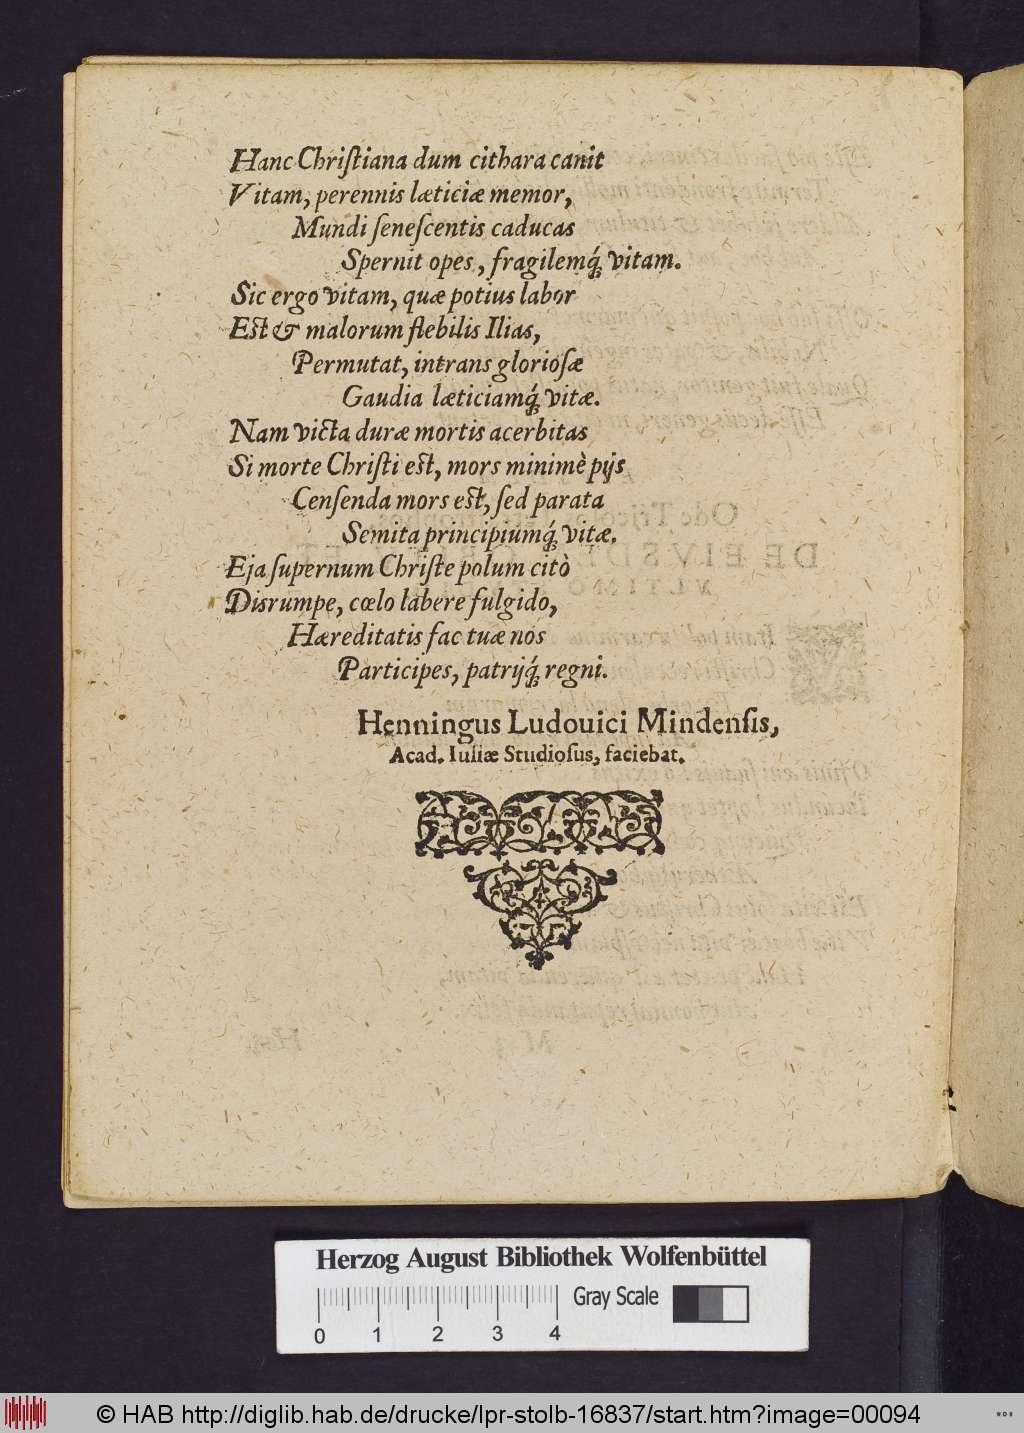 Hanc Chriſtiana dum cithara canit
Vitam, perennis læticiæ memor,
Mundi ſeneſcentis caducas
Spernit opes, fragilemq́; vitam.
Sic ergo vitam, quæ potius labor
Est & malorum flebilis Ilias,
Permutat, intrans glorioſæ
Gaudia læticiamq́; vitæ.
Nam victa duræ mortis acerbitas
Si morte Chriſti est, mors minimè pijs
Cenſenda mors est, ſed parata
Semita principiumq́; vitæ.
Eja ſupernum Chriſte polum citò
Disrumpe, cœlo labere fulgido,
Hæreditatis fac tuæ nos
Participes, patrijq́; regni.
Henningus Ludouici Mindenſis,
Acad. Iuliæ Studioſus, faciebat.
Herzog August Bibliothek Wolfenbüttel
Gray Scale
0 1 2 3 4
© HAB http://diglib.hab.de/drucke/lpr-stolb-16837/start.htm?image=00094